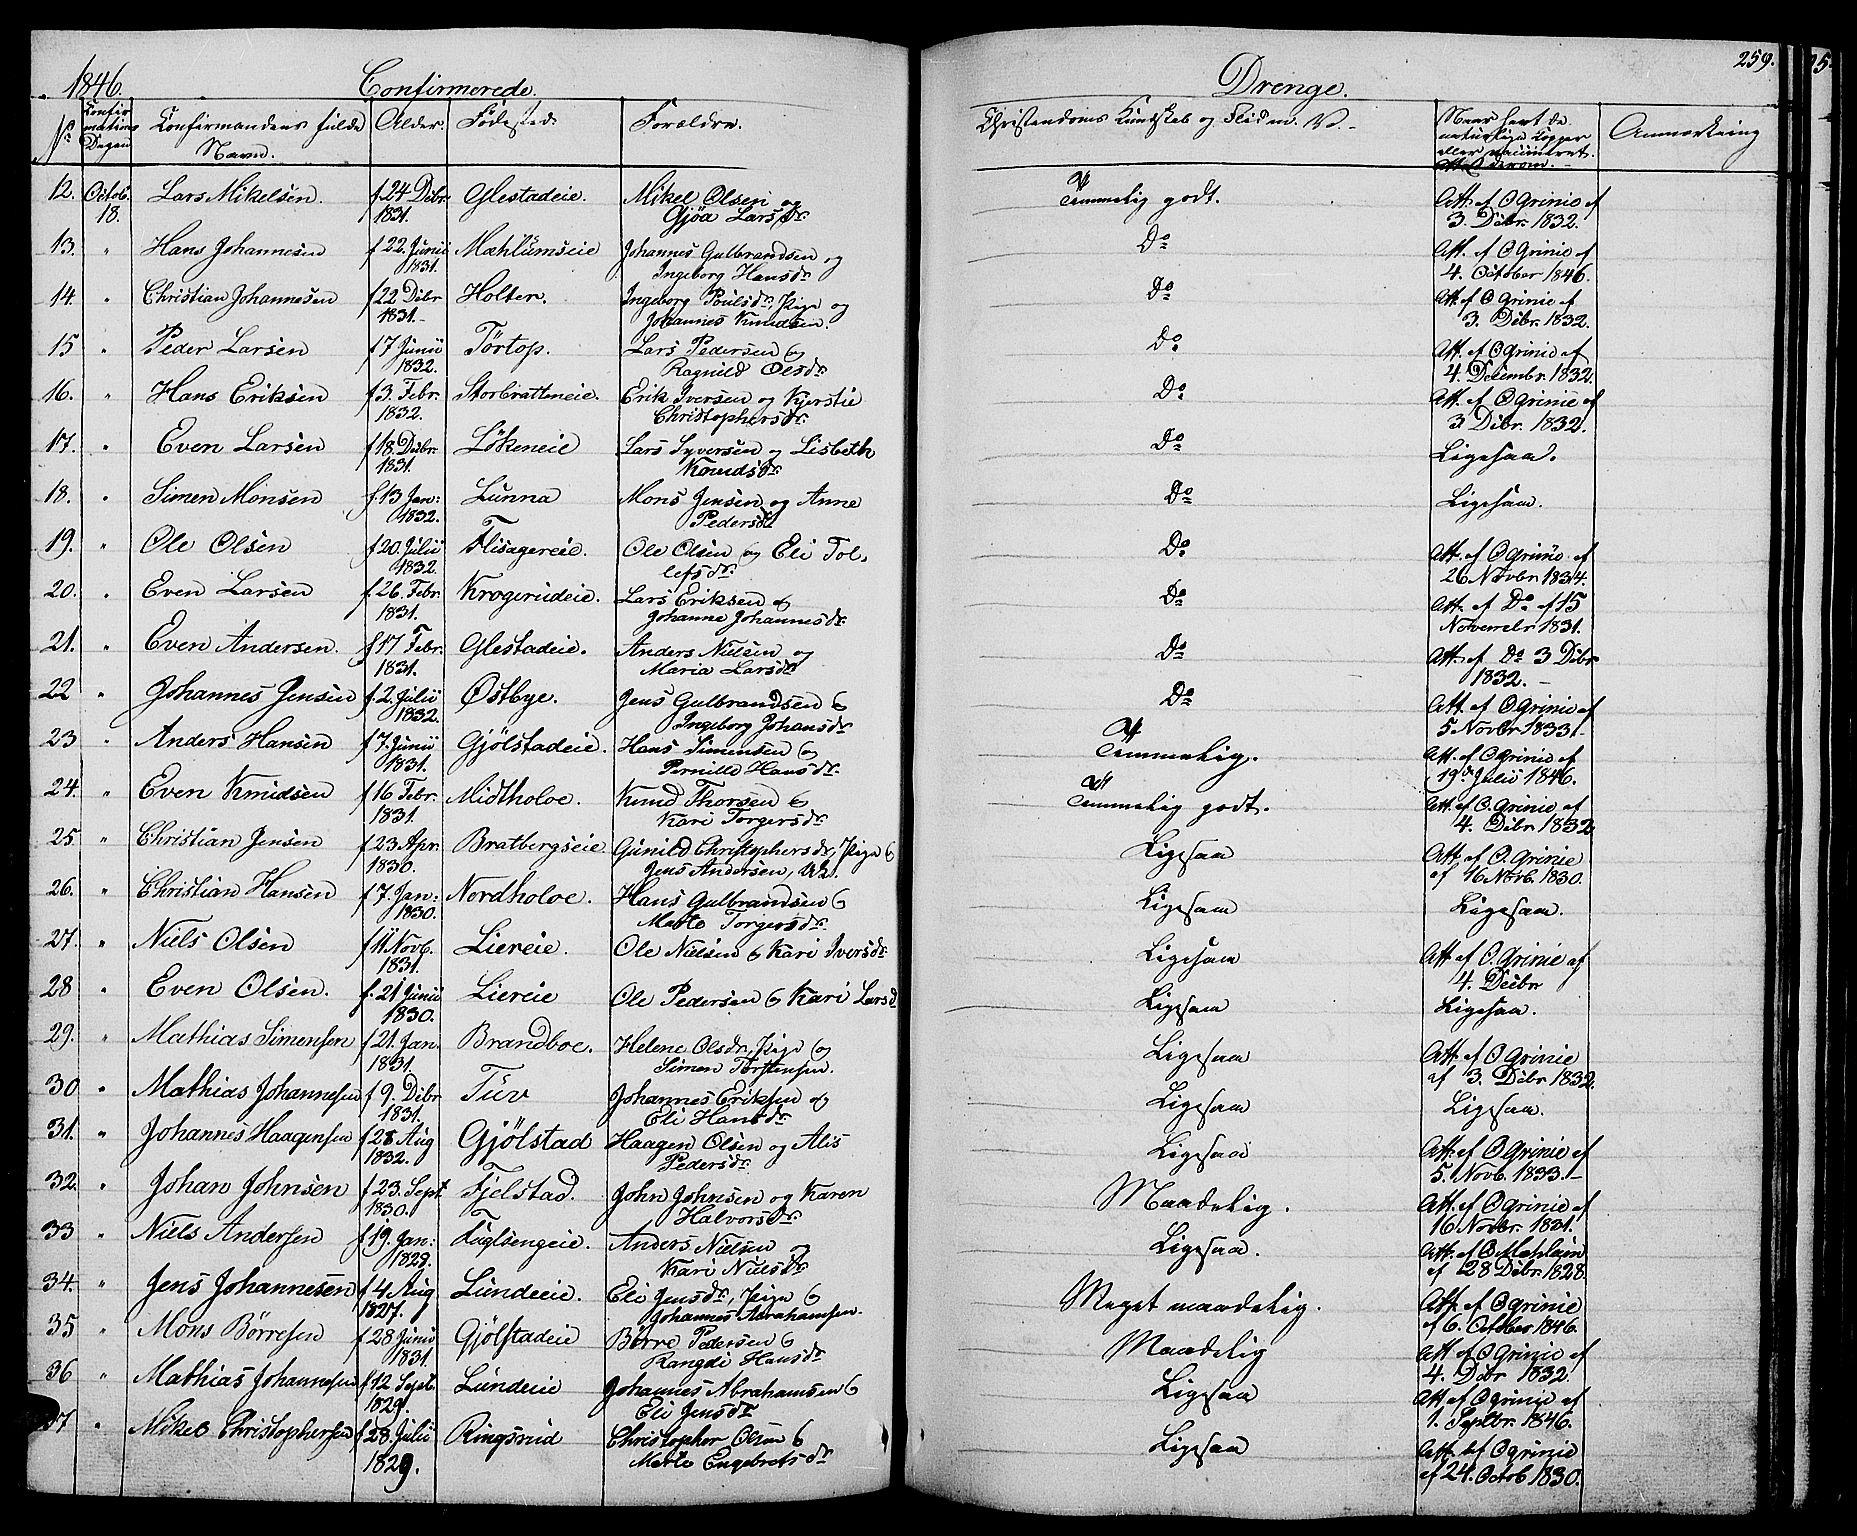 1846. Confirmerede. Drenge. 259.
No Confirmations Dagen Confirmandens fulde Navn. Alder. Fødested. Forældre. Christendoms Kundskab og Flid m. V. Naar havt de naturlige Kopper eller vaccineret. Att. derom. Anmærkning
12. Octob. 18. Lars Mikelsen. f 24 Decbr 1831. Glestadeie. Mikel Olsen og Gjøa Larsdr. Temmelig godt. Att. af O Grinie af 3. Decbr 1832.
13. " Hans Johannesen f 22. Junii 1831. Mæhlumseie Johannes Gulbrandsen og Ingeborg Hansdr Do Att. af O Grinie af 4. October 1846.
14. " Christian Johannesen f 22 Decbr 1831. Holter. Ingeborg Poulsdr, Pige og Johannes Knudsen. Do Att. af O Grinie af 3. Decbr. 1832.
15 " Peder Larsen f 7 Junii 1832. Törtop. Lars Pedersen og Ragnild Olsdr. Do Att. af O Grinie af 4. Decembr. 1832.
16. " Hans Eriksen f 3. Febr. 1832. Storbratteneie. Erik Iversen og Kjerstie Christophersdr. Do Att. af O Grinie af 3 Decbr. 1832.
17. " Even Larsen f 18. Decbr. 1831. Lökeneie Lars Syversen og Lisbeth Knudsdr. Do Ligesaa.
18. " Simen Monsen f. 13 Jan: 1832. Lunna Mons Jensen og Anne Pedersdr Do Ligesaa.
19. " Ole Olsen f 20. Julii 1832. Flisagereie. Ole Olsen og Eli Tollefsdr. Do Att. af O Grinie af 26 Novbr 1834.
20. " Even Larsen f. 26. Febr. 1831. Krogerudeie. Lars Eriksen og Johanne Johannesdr Do Att. af Do af 15 November 1831.
21. " Even Andersen. f 17 Febr. 1831. Glestadeie. Anders Nielsen og Maria Larsdr Do Att. af Do 3 Decbr 1832.
22 " Johannes Jensen f. 2. Julii 1832. Østbye. Jens Gulbrandsen og Ingeborg Johansdr Do Att. af O Grinie af 5 Novbr. 1833.
23 " Anders Hansen f 7. Junii 1831. Gjölstadeie. Hans Simensen og Pernille Hansdr. Temmelig. Att. af O Grinie af 19de Julii 1846.
24. " Even Knudsen f 16 Febr. 1831. Midtholoe. Knud Thorsen og Kari Torgersdr. Temmelig godt. Att. af O. Grinie af 4. Decbr 1832
25 " Christian Jensen f 23 Apr. 1830. Bratbergseie Gunild Christophersdr, Pige og Jens Andersen, Ligesaa Att. af O. Grinie af 16 Novb. 1830.
26. " Christian Hansen f 7. Jan: 1830. Nordholoe. Hans Gulbrandsen og Marte Torgersdr. Ligesaa Ligesaa.
27. " Niels Olsen f 11 Novb. 1831. Liereie. Ole Nielsen og Kari Iversdr. Ligesaa Att. af O. Grinie af 4. Decbr
28 " Even Olsen. f. 21 Junii 1830. Liereie Ole Pedersen og Kari Larsd Ligesaa Ligesaa.
29. " Mathias Simensen f 21. Jan. 1831. Brandboe. Helene Olsdr. Pige og Simen Torstensen. Ligesaa Att. af O Grinie af 3. Decbr. 1832.
30 " Mathias Johannesen f 9. Decbr 1831. Tuv Johannes Eriksen og Eli Hansdr. Ligesaa Ligesaa.
31. " Johannes Haagensen f 28 Aug 1832. Gjölstad Haagen Olsen og Alis Pedersdr. Ligesaa Att. af O Grinie af 5. Novb. 1833.
32. " Johan Johnsen f 23. Sept. 1830. Fjelstad. John Johnsen og Karen Halvorsdr. Maadelig. Att. af O Grinie af 16 Novbr. 1831.
33 " Niels Andersen f 19. Jan: 1829. Fuglsengeie. Anders Nielsen og Kari Nielsdr Ligesaa. Att. af O Mæhlum af 28 Decbr. 1828.
34. " Jens Johannesen f 4 Aug 1827. Lundeeie. Eli Jensdr, Pige og Johannes Abrahamsen. Meget maadelig. Att. af O Grinie af 6. October 1846.
35 " Mons Börresen f. 28 Junii 1831. Gjölstadeie Börre Pedersen og Rangdi Hansdr Maadelig Att. af O Grinie af 4. Decbr 1832.
36 " Mathias Johannesen f 12 Septb. 1829. Lundeie Johannes Abrahamsen og Eli Jensdr Ligesaa Att af O Grinie af 1. Septbr. 1846.
37 " Mikel Christophersen f 28. Julii 1829. Ringsrud Christopher Olsen og Marte Engebretsdr Ligesaa Att. af O Grinie af 24. Octob 1830.